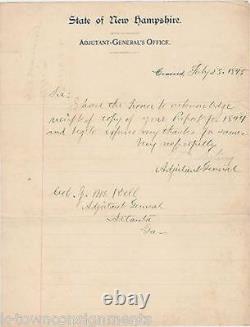 State of New Hampshire.
ADJUTANT-GENERAL'S OFFICE.
Concord, July 23, 1895
Sir:
I have the honor to acknowledge
receipt of copy of your Report for 1894
and beg to express my thanks for same.
Very respectfully
Adjutant General
Col. J. Mc
Adjutant General
Atlanta
Ga
k-townconsignments